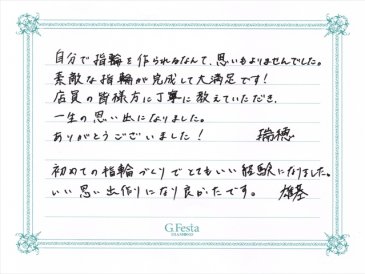 自分で指輪を作られるなんて、思いもよりませんでした。
素敵な指輪が完成して大満足です!
店員の皆様方に丁寧に教えていただき、
一生の思い出になりました。
ありがとうございました! 瑞穂
初めての指輪づくりでとてもいい経験になりました。
いい思い出作りになり良かったです。 雄基
G.Festa
DIAMOND